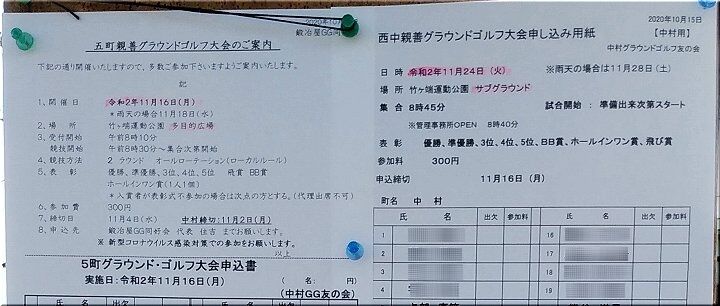 鍛冶屋GG同好会
五町親善グラウンドゴルフ大会のご案内
下記の通り開催いたしますので、多数ご参加下さいますようご案内いたします。
記
1、開催日 令和2年11月16日(月)
*雨天の場合11月18日(水)
2、場所 竹ヶ端運動公園 多目的広場
3、受付開始 午前8時10分
競技開始 午前8時30分～集合次第開始
4、競技方法 2 ラウンド オールローテーション(ローカルルール)
5、表彰 優勝、準優勝、3位、4位、5位 飛賞 BB賞
ホールインワン賞(1人1個)
*入賞者が表彰式不参加の場合は次点の方とする。(代理出席不可)
6、参加費 300円
7、締切日 11月4日(水) 中村締切:11月2日(月)
8、申込先 鍛冶屋GG同好会 代表 住吉 までお願いします。
※ 新型コロナウイルス感染対策での参加をお願いします。
以上
5町グラウンド・ゴルフ大会申込書
実施日:令和2年11月16日(月) ( 名: 円)
(中村GG友の会)
2020年10月15日
西中親善グラウンドゴルフ大会申し込み用紙 【中村用】
中村グラウンドゴルフ友の会
日時 令和2年11月24日(火) ※雨天の場合は11月28日(土)
場所 竹ヶ端運動公園 サブグラウンド
集合 8時45分 試合開始 : 準備出来次第スタート
※管理事務所OPEN 8時40分
表彰 優勝、準優勝、3位、4位、5位、BB賞、ホールインワン賞、飛び賞
参加料 300円
申込締切 11月16日(月)
町名 中村
氏 名 出欠 参加料 氏 名 出欠 参加料
1 16
2 17
3 18
4 19